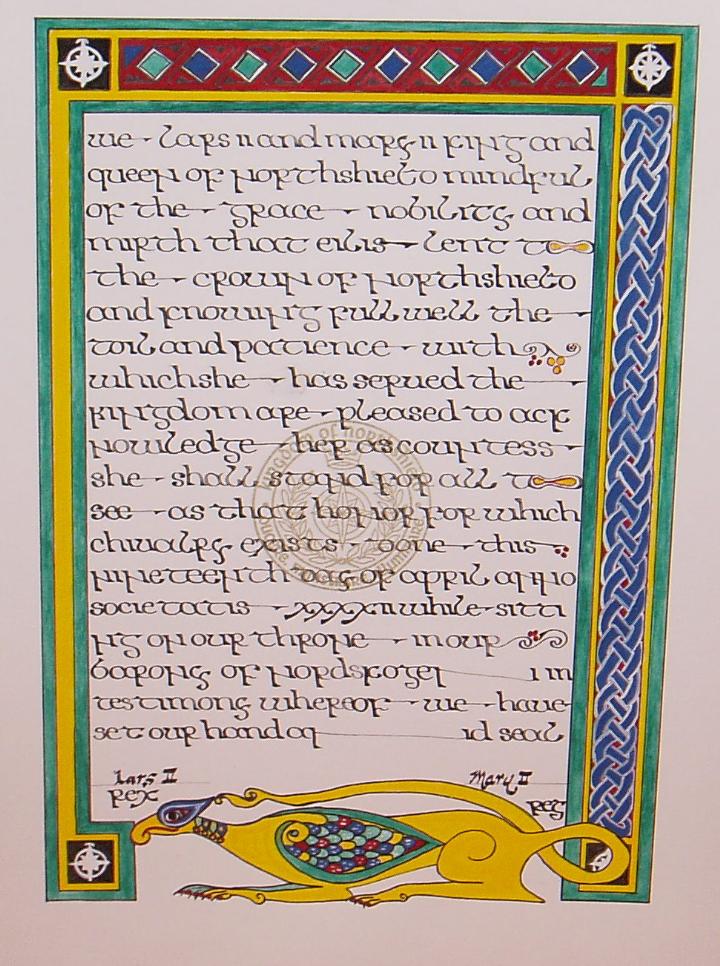 we lars II and mary II king and
queen of northshield mindful
of the grace nobility and
mirth that eilis lent to
the crown of northshield
and knowing full well the
toil and patience with
which she has served the
kingdom are pleased to ack
nowledge her as countess
she shall stand for all to
see as that honor for which
chivalry exists done this
nineteenth day of april anno
societatis xxxxII while sitti
ng on our throne in our
barony of nordskogen in
testimony whereof we have
set our hand and seal
Lars II
Mary II
Rex
Reg
kingdom of northshield